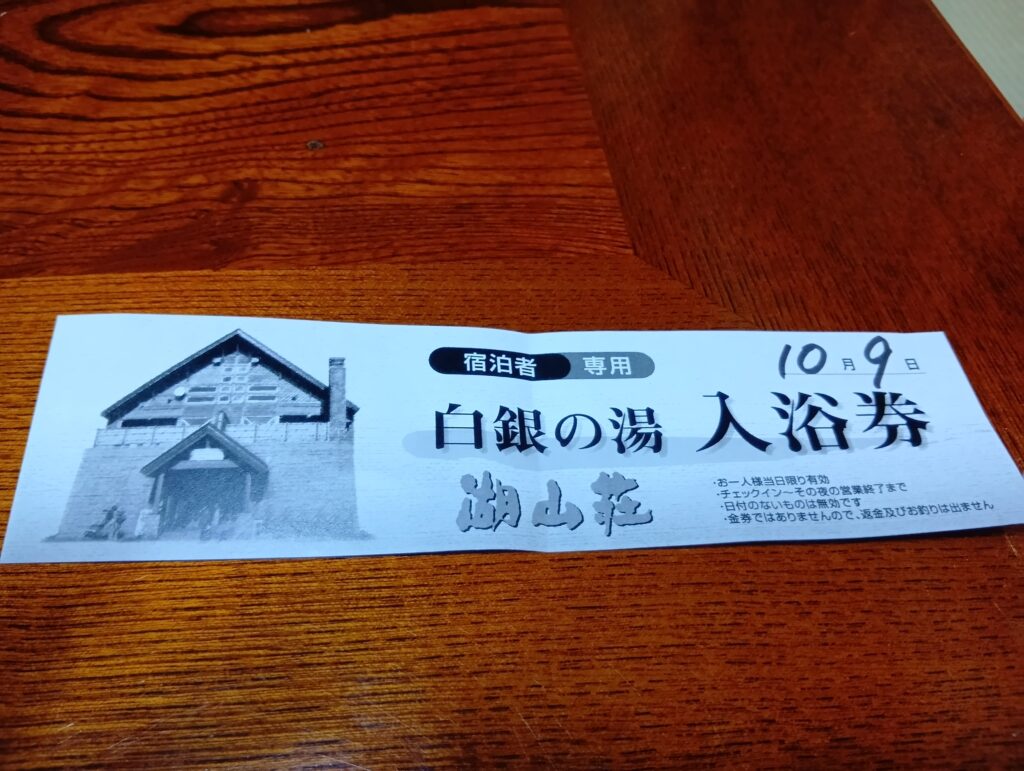 宿泊者 専用
10月9日
白銀の湯 入浴券
湖山荘
・お一人様当日限り有効
・チェックイン～その夜の営業終了まで
・日付のないものは無効です
・金券ではありませんので、返金及びお釣りは出ません